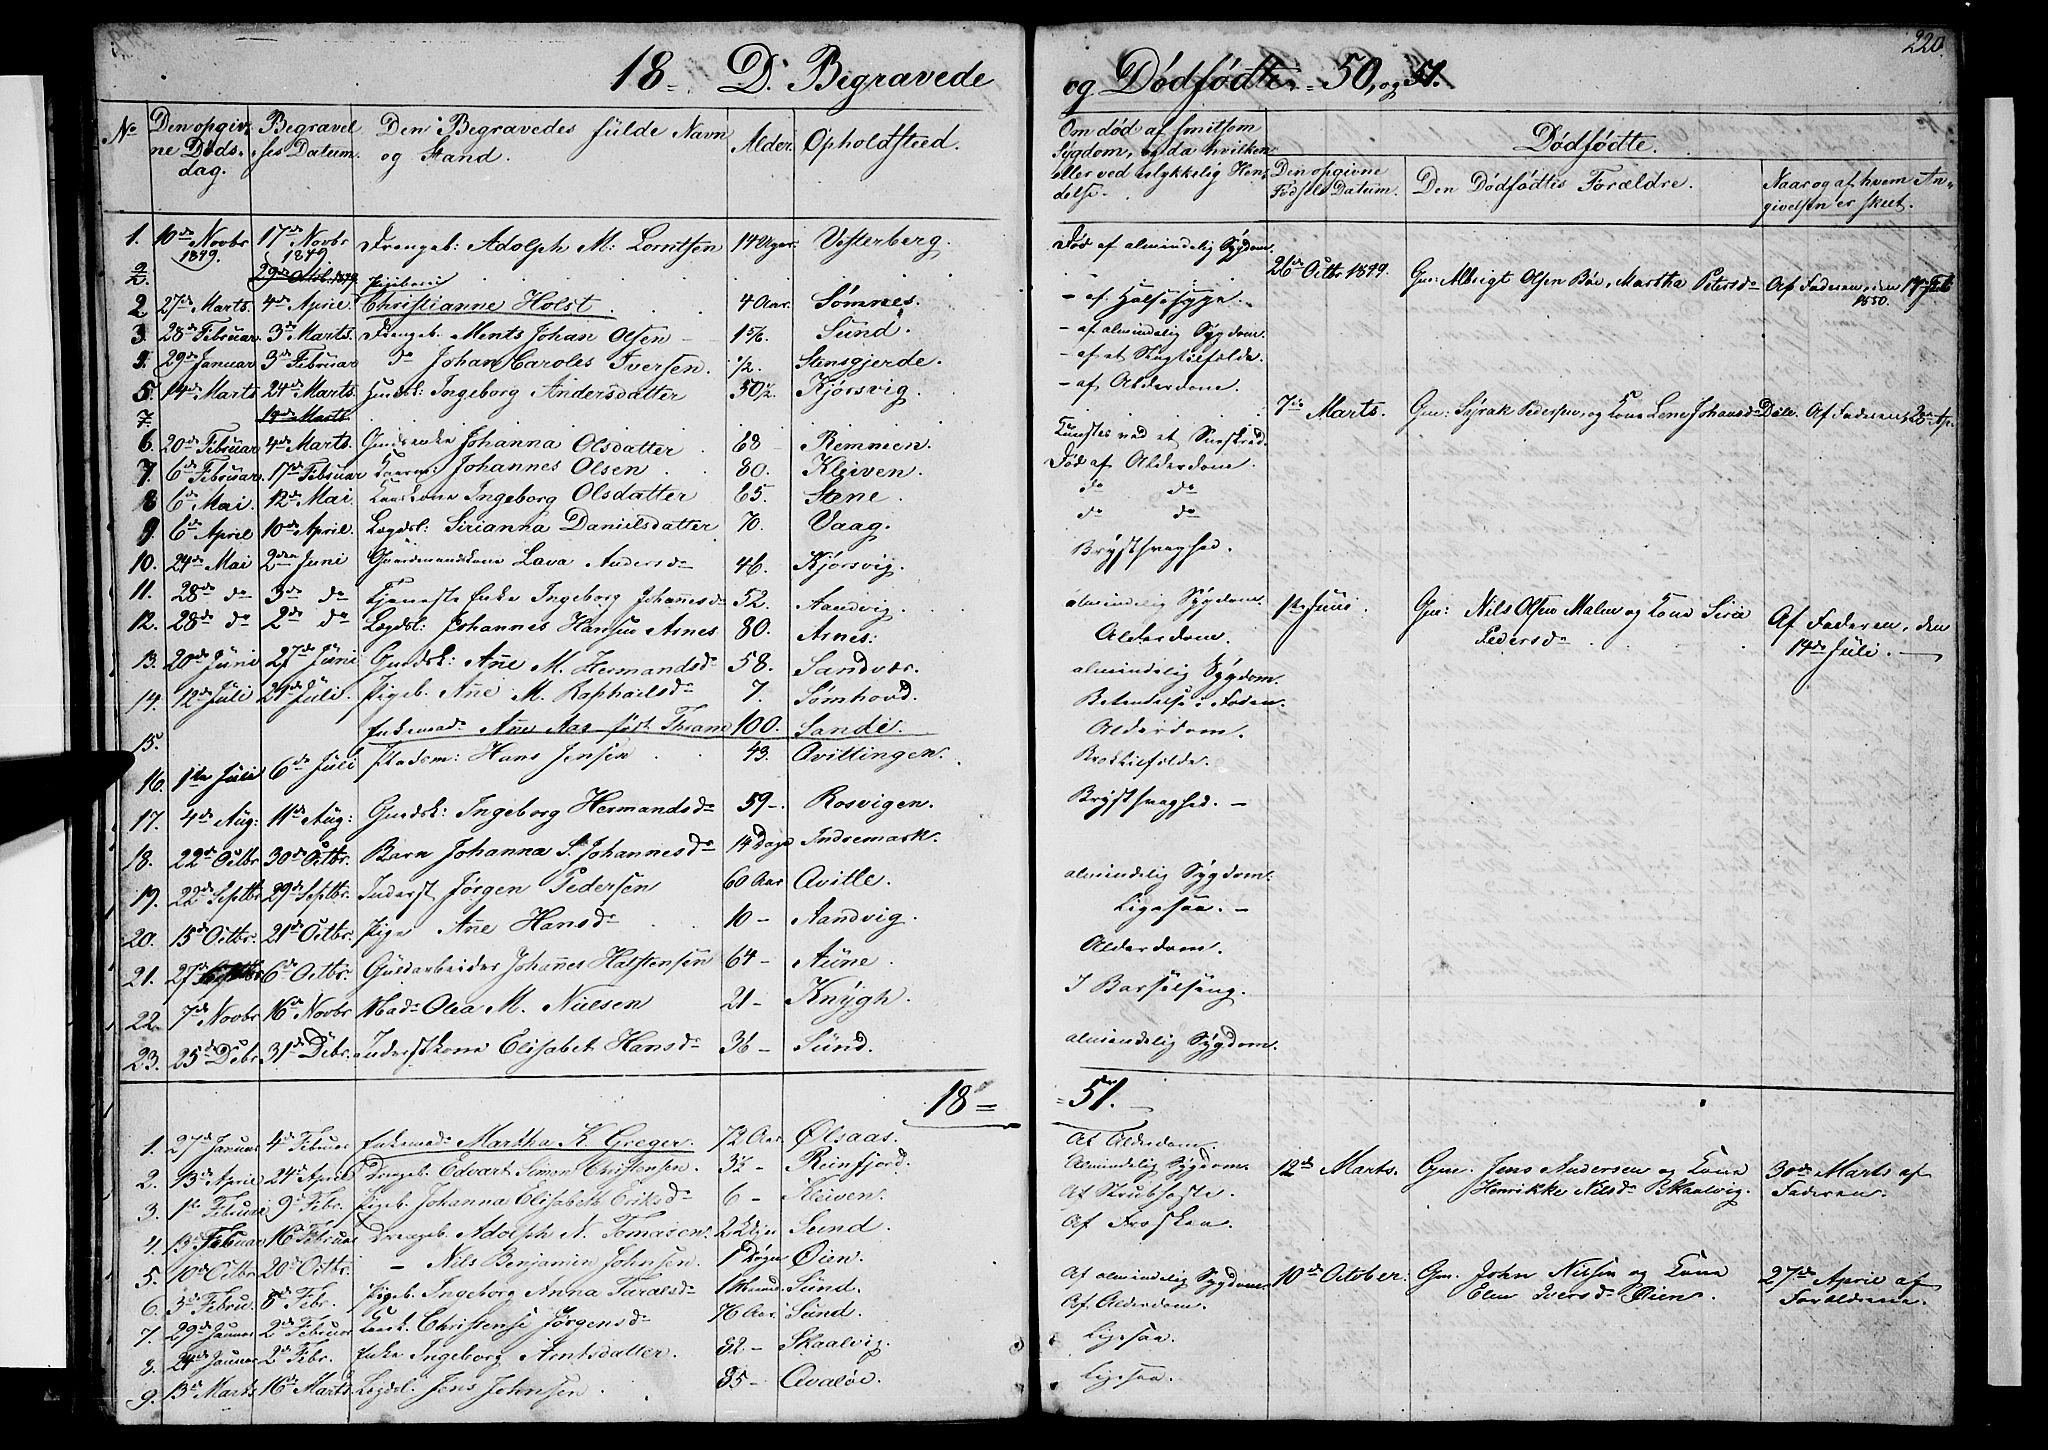 220
18 = D. Begravede og Dödfödte = 50, og 51.
No Den opgivne Döds-dag. Begravelses Datum. Den Begravedes fulde Navn og Stand. Alder. Opholdsted. Om död af smitsom Sygdom, og da hvilken eller ved ulykkelig Hendelse. Dödfödte.
Den opgivne Födsels Datum. Den Dödfödtes Forældre. Naar og af hvem Angivelsen er skeet.
1. 10de Novbr 1849. 17de Novbr 1849 Drengeb: Adolph M: Lorntsen 14 Uger. Vesterberg. Död af almindelig Sygdom.
2. 29de 1849 26de Octbr 1849. Gm: Albrigt Olsen Böe, Martha Petersd. Af Faderen, den 1850.
2 27de Marts. 4de April. Pigebarn Christianne Holst 4 Aar. Sömnes. - af Halsesyge.
3. 28de Februar. 3de Marts. Drengeb: Ments Johan Olsen 1 5/6. Sund. - af almindelig Sygdom.
4. 29de Januar 3de Februar do Johan Caroles Iversen. 1/2. Stensgjerde. - af et Slagtilfælde.
5. 14de Marts 24de Marts. Ingeborg Andersdatter 50 1/2. Kjörsvig. - af Alderdom.
7. 18de Marts 7de Marts. Gm: Syrak Pedersen, og Kone Lene Johansd. Af Faderen, 28de Ap.
6. 20de Februar 4de Marts. Johanna Olsdatter 68 Remmen. et Sneskred.
7. 6de Februar. 17de Februar Johannes Olsen 80. Kleiven. Död af Alderdom.
8 6de Mai. 12de Mai. Ingeborg Olsdatter 65. Stene. do do
9. 6de April 10de April. Lægdsl: Sirianna Danielsdatter 70. Vaag. do do
10. 24de Mai 2den Juni Gaardmandskone Lava Andersd. 46. Kjörsvig. Brystsvaghed.
11. 28de do 3de do Tjeneste Enke Ingeborg Johannesd. 52. Aandvig. almindelig Sygdom. 1ste Juni. Gm: Nils Olsen Malm og Kone Siri Pedersd. Af Faderen, den 14de Juli.
12. 28de do 2de do Lægdsl: Johannes Hansen Arnes 80. Arnes: Alderdom.
13. 20de Juni 27de Juni Ane M. Hermandsd. 58. Sandvær. almindelig Sygdom.
14. 12de Juli 21de Juli. Pigeb. Ane M. Raphaelsd. 7. Sömhovd. Betændelse i Foden.
15. Enkemad. Ane Aas föd Thrane 100. Sande. Alderdom.
16. 1ste Juli 6de Juli Hans Jensen 43. Qvittingen. Broktilfælde.
17. 4de Aug: 11te Aug: Ingeborg Hermandsd. 59-. Rosvigen. Brystsvaghed.
18. 22de Octbr 30de Octbr. Barn Johanna S. Johannesd. 14 Dage Indremark.
19. 22de Septbr 29de Septbr. Inderst Jörgen Pedersen 60 Aar Qville. almindelig Sygdom.
20. 15de Octbr. 21de Octbr. Pige Ane Hansd. 10 - Aandvig. Ligesaa.
21. 27de Septbr 6de Octbr. Guldarbeider Johannes Halstensen 64 - Aune. Alderdom.
22. 7de Novbr 16de Novbr Mad. Olea M. Nielsen 21 - Knygh. I Barselseng.
23. 25de Dcbr. 31de Dcbr. Inderstkone Elisabet Hansd. 36 - Sund. almindelig Sygdom.
18 = = 51.
1. 27de Januar 4de Februar Enkemad. Martha K. Greger. 72 Aar. Ölsaas. Af Alderdom.
2. 13de April 24de April Drengeb. Edvart Simon Christensen. 3 1/2 - Reinfjord. Almindelig Sygdom. 12de Marts. Gm. Jens Andersen og Kone Henrikke Nilsd. Skaalvig. 30de Marts af Faderen.
3. 1ste Februar 9de Febr. Pigeb. Johanna Elisabeth Eriksd. 6 - Kleiven. Af Strubhoste.
4. 13de Februar 16de Februar Drengeb. Adolph N. Tomasen. 2 Sund. Af Frosken.
5. 10de Octbr 20de Octbr. - Nils Benjamin Johnsen. 1 Dögn Öien.
6. 3de Febru. 8de Febr. Pigeb. Ingeborg Anna Taralsd. 1 Maaned Sund. Af almindelig Sygdom. 10de October. Gm. John Nilsen og Kone Elen Iversd. Öien. 27de April af Forældrene.
7. 29de Januar 2de Februar Christense Jörgensd. 76 Aar. Sund. Af Alderdom.
8. 24de Januar 2de Febr. Enke Ingeborg Arntsdatter. 82. - Skaalvig. Ligesaa.
9. 13de Marts. 16de Marts. Lægdsl. Jens Johnsen. 85 - Qvalöe. Ligesaa.